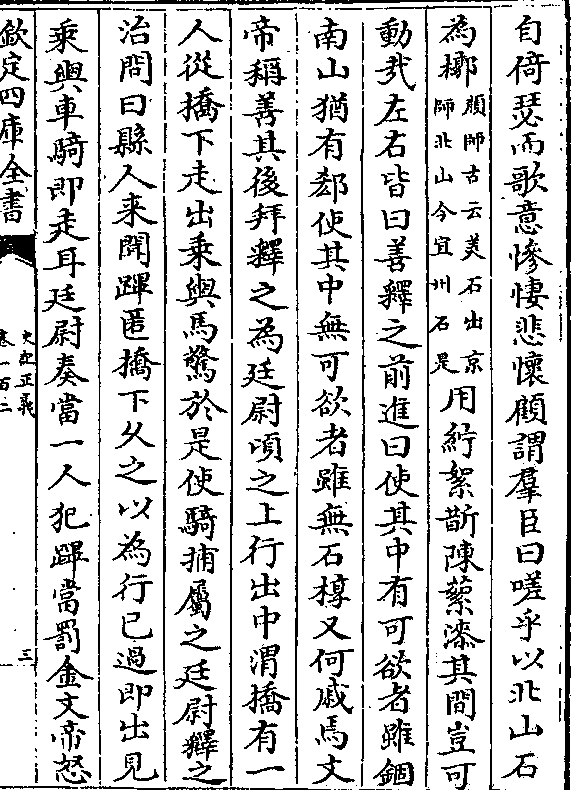 自倚瑟而歌意慘悽悲懷顧謂羣臣曰嗟乎以北山石
為槨顔師古云美石出京師北山今宜州石是用紵絮斮陳蘩漆其間豈可
動㢤左右皆曰善釋之前進曰使其中有可欲者雖錮
南山猶有郄使其中無可欲者雖無石椁又何戚焉文
帝稱善其後拜釋之為廷尉頃之上行出中渭橋有一
人從橋下走出乗輿馬驚於是使騎捕屬之廷尉釋之
治問曰縣人来聞蹕匿橋下乆之以為行已過即出見
乘輿車騎即走耳廷尉奏當一人犯蹕當罰金文帝怒
欽定四庫全書
史記正義
卷一百二
三